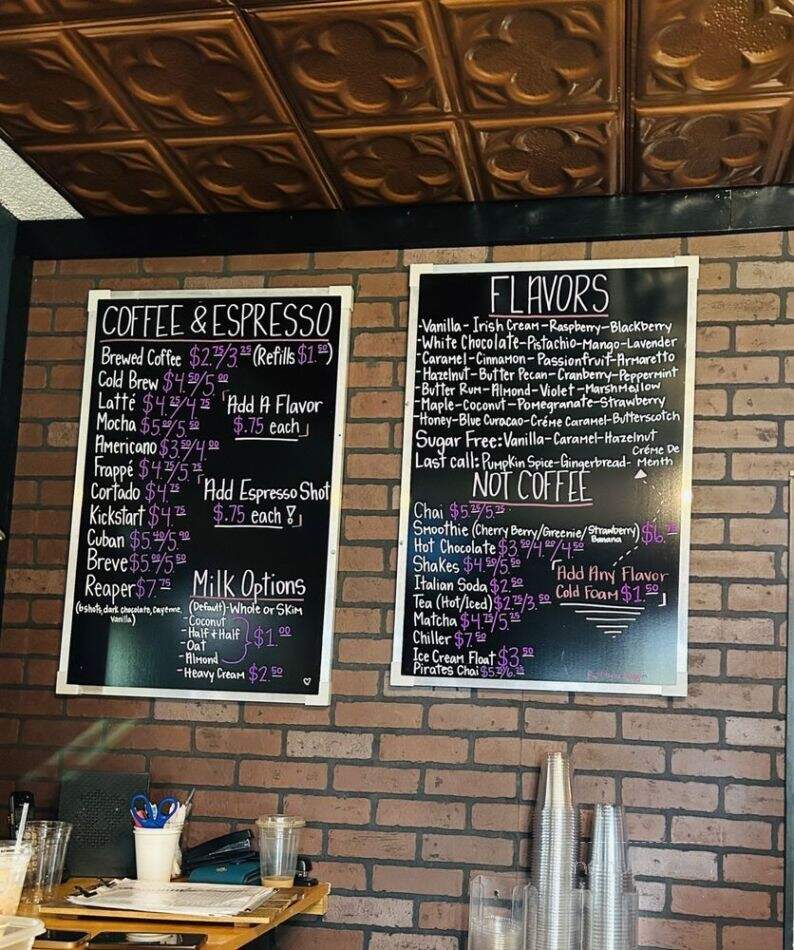 COFFEE & ESPRESSO
Brewed Coffee $2.75/3.25 (Refills $1.50)
Cold Brew $4.50/5.00
Latté $4.25/4.75
Mocha $5.00/5.50
Americano $3.50/4.00
Frappé $4.75/5.75
Cortado $4.25
Kickstart $4.75
Cuban $5.40/5.90
Breve $5.00/5.50
Reaper $7.75
(6 shots, dark chocolate, Cayenne,
Vanilla)
Add A Flavor
$.75 each
Add Espresso Shot
$.75 each!
Milk Options
(Default)-Whole or Skim
-Coconut
-Half & Half
-Oat
-Almond
$1.00
-Heavy Cream $2.50
FLAVORS
-Vanilla-Irish Cream-Raspberry-Blackberry
-White Chocolate-Pistachio-Mango-Lavender
-Caramel-Cinnamon-Passionfruit-Armaretto
-Hazelnut-Butter Pecan-Cranberry-Peppermint
-Butter Rum-Almond-Violet-Marshmellow
-Maple-Coconut-Pomegranate-Strawberry
-Honey-Blue Curacao-Créme Caramel-Butterscotch
Sugar Free: Vanilla-Caramel-Hazelnut
Last call: Pumpkin Spice-Gingerbread- Créme De
Menth
NOT COFFEE
Chai $5.25/5.75
Smoothie (Cherry Berry/Greenie/Strawberry Banana) $6.75
Hot Chocolate $3.50/4.00/4.50
Shakes $4.50/5.50
Italian Soda $2.50
Tea (Hot/Iced) $2.75/3.50
Matcha $4.75/5.25
Chiller $7.50
Ice Cream Float $3.50
Pirates Chai
Add Any Flavor
Cold Foam $1.50